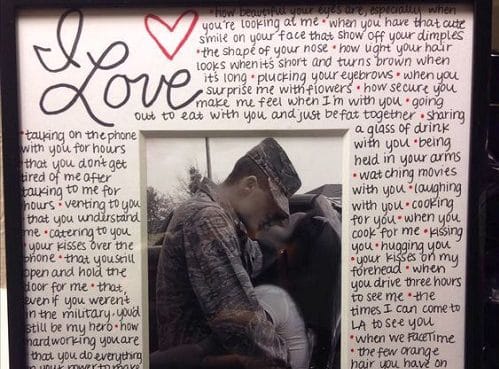 I
Love
•how beautiful your eyes are, especially when
you're looking at me • when you have that cute
smile on your face that show off your dimples
•the shape of your nose • how light your hair
looks when its short and turns brown when
it's long • plucking your eyebrows • when you
surprise me with flowers • how secure you
make me feel when I'm with you • going
out to eat with you and just be fat together • sharing
a glass of drink
with you • being
held in your arms
• watching movies
with you • laughing
with you • cooking
for you • when you
cook for me • kissing
you • hugging you
• your kisses on my
forehead • when
you drive three hours
to see me • the
times I can come to
LA to see you
• when we FaceTime
• the few orange
hair you have on
•talking on the phone
with you for hours
•that you don't get
tired of me after
talking to me for
hours • venting to you
•that you understand
me • catering to you
•your kisses over the
phone • that you still
open and hold the
door for me • that,
even if you weren't
in the military, you'd
still be my hero • how
hardworking you are
•that you do everything
in your power to make